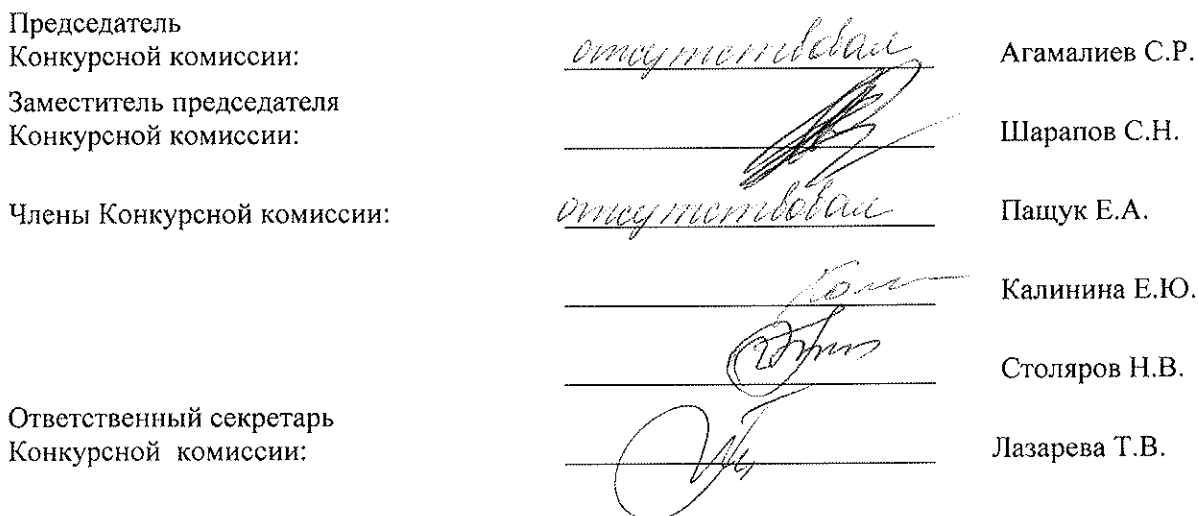 Председатель
Конкурсной комиссии: отсутствовал Агамалиев С.Р.
Заместитель председателя
Конкурсной комиссии: Шарапов С.Н.
Члены Конкурсной комиссии: отсутствовал Пащук Е.А.
Калинина Е.Ю.
Столяров Н.В.
Ответственный секретарь
Конкурсной комиссии: Лазарева Т.В.